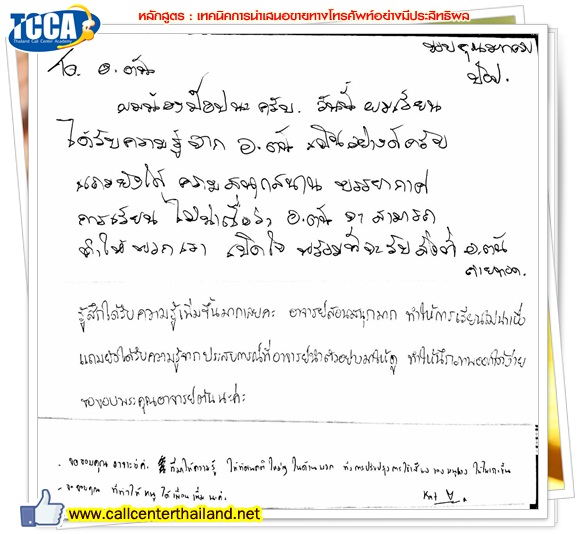 TCCA
Thailand Call Center Academy
หลักสูตร : เทคนิคการนำเสนอขายทางโทรศัพท์อย่างมีประสิทธิผล
To. อ.ตัน
ผมน้องป๊อปนะครับ. วันนี้ ผมเรียน
ได้รับความรู้จาก อ.ตัน เป็นอย่างดีครับ
แถมยังได้ ความสนุกสนาน บรรยากาศ
การเรียน ไม่น่าเบื่อ อ.ตัน สามารถ
ทำให้ พวกเรา เปิดใจ พร้อมที่จะรับ สิ่งที่ อ.ตัน
ถ่ายทอด.
ขอบคุณมากครับ
ป๊อป.
รู้สึกได้รับความรู้เพิ่มขึ้นมากเลยคะ อาจารย์สอนสนุกมาก ทำให้การเรียนไม่น่าเบื่อ
แถมยังได้รับความรู้จากประสบการณ์ที่อาจารย์นำตัวอย่างมาให้ดู ทำให้นึกภาพออกได้ง่าย
ขอขอบพระคุณอาจารย์ตันนะค่ะ
- ขอขอบคุณ อาจารย์ค่ะ. ที่มาให้ความรู้ ให้ทัศนคติ ใหม่ๆ ในด้านบวก ทั้งการปรับปรุงการใช้เสียง ของหนูเอง ให้ดีมากขึ้น
- ขอขอบคุณ ที่ทำให้ หนู ได้เพื่อน เพิ่ม นะค่ะ.
www.callcenterthailand.net